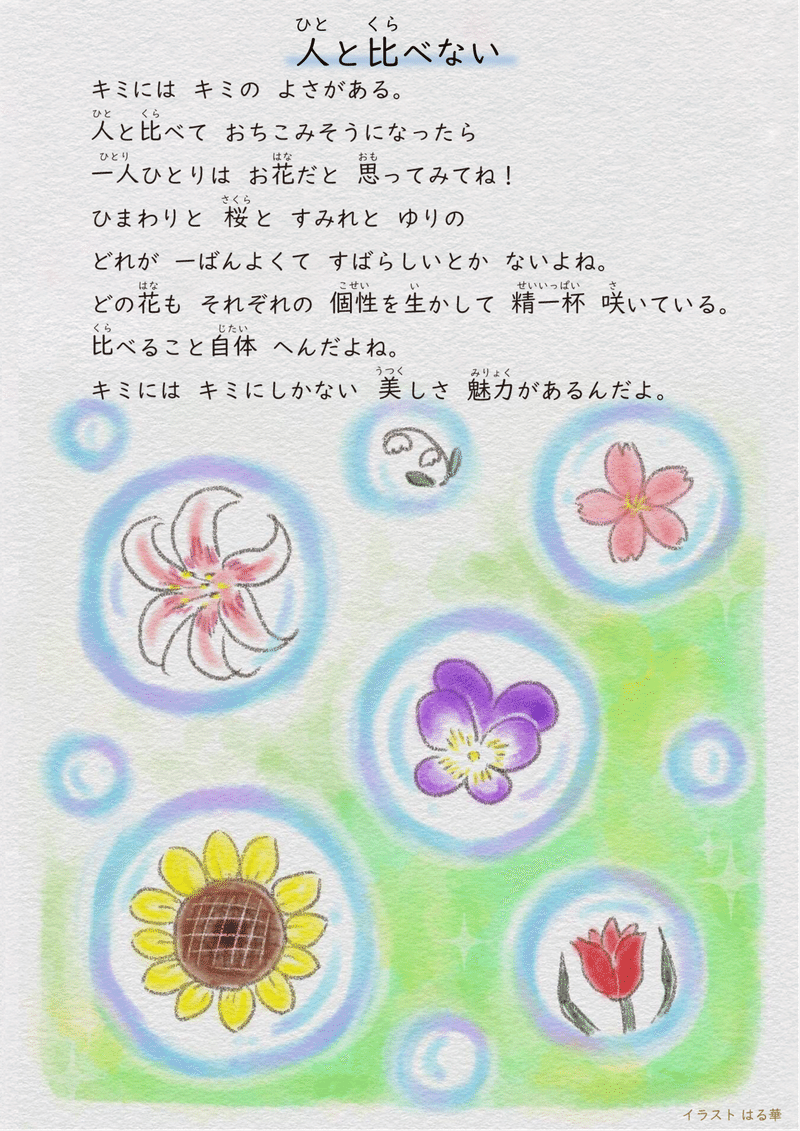 人と比べない
キミには キミの よさがある。
人と比べて おちこみそうになったら
一人ひとりは お花だと 思ってみてね！
ひまわりと 桜と すみれと ゆりの
どれが 一ばんよくて すばらしいとか ないよね。
どの花も それぞれの 個性を生かして 精一杯 咲いている。
比べること自体 へんだよね。
キミには キミにしかない 美しさ 魅力があるんだよ。
イラスト はる華